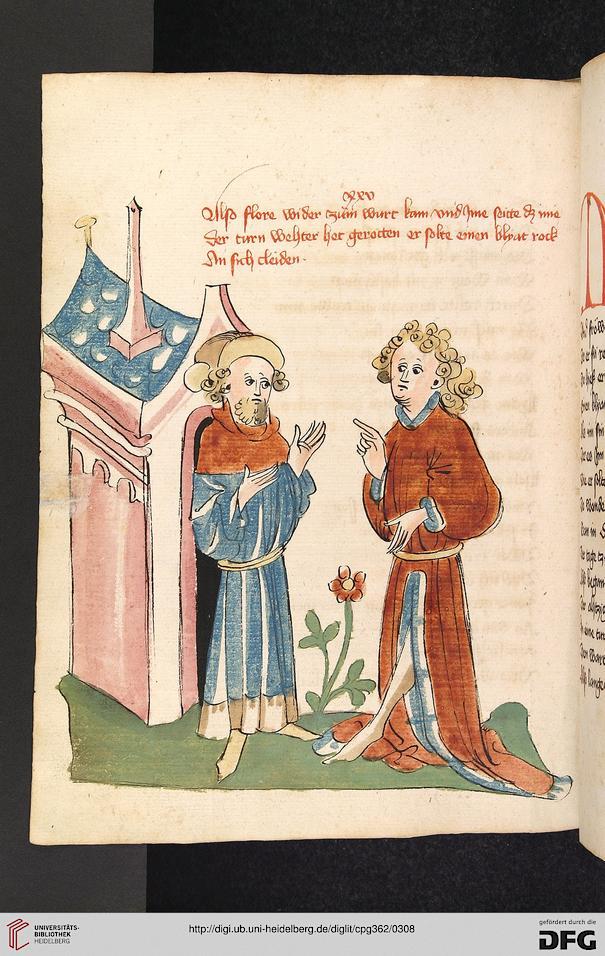 xxv
Also flore wider zům wurt kam vnd Ime seitte dz ime
Der turn wehter het gerotten er solte einen blyat rock
An sich cleiden ·
UNIVERSITÄTS-
BIBLIOTHEK
HEIDELBERG
http://digi.ub.uni-heidelberg.de/diglit/cpg362/0308
gefördert durch die
DFG